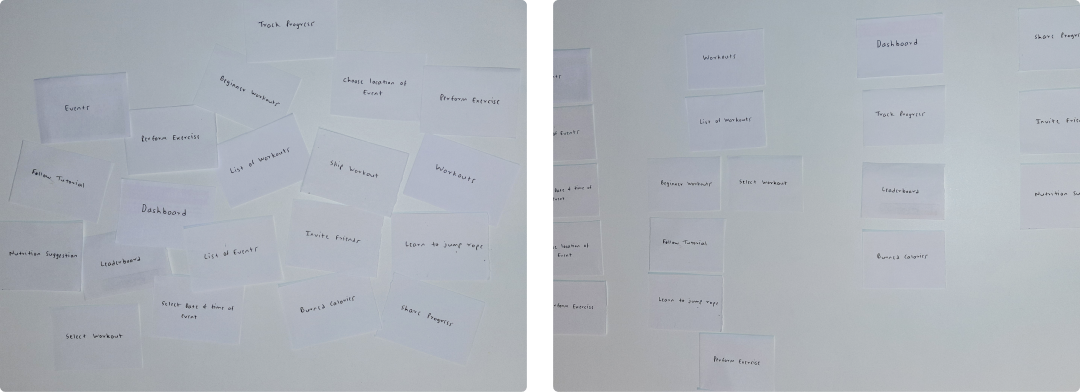 Track Progress
Events
Beginner Workouts
Choose location of
Event
Perform Exercise
Perform Exercise
List of Workouts
Skip Workout
Workouts
Follow Tutorial
Dashboard
Nutrition Suggestion
Leaderboard
List of Events
Invite Friends
Learn to jump rope
Select Date & time of
Event
Burned Calories
Share Progress
Select Workout
nts
of Events
Date & time of
Event
location of
Event
form Exercise
Workouts
List of Workouts
Beginner Workouts
Select Workout
Follow Tutorial
Learn to jump rope
Perform Exercise
Dashboard
Track Progress
Leaderboard
Burned Calories
Share Progre
Invite Frien
Nutrition Su